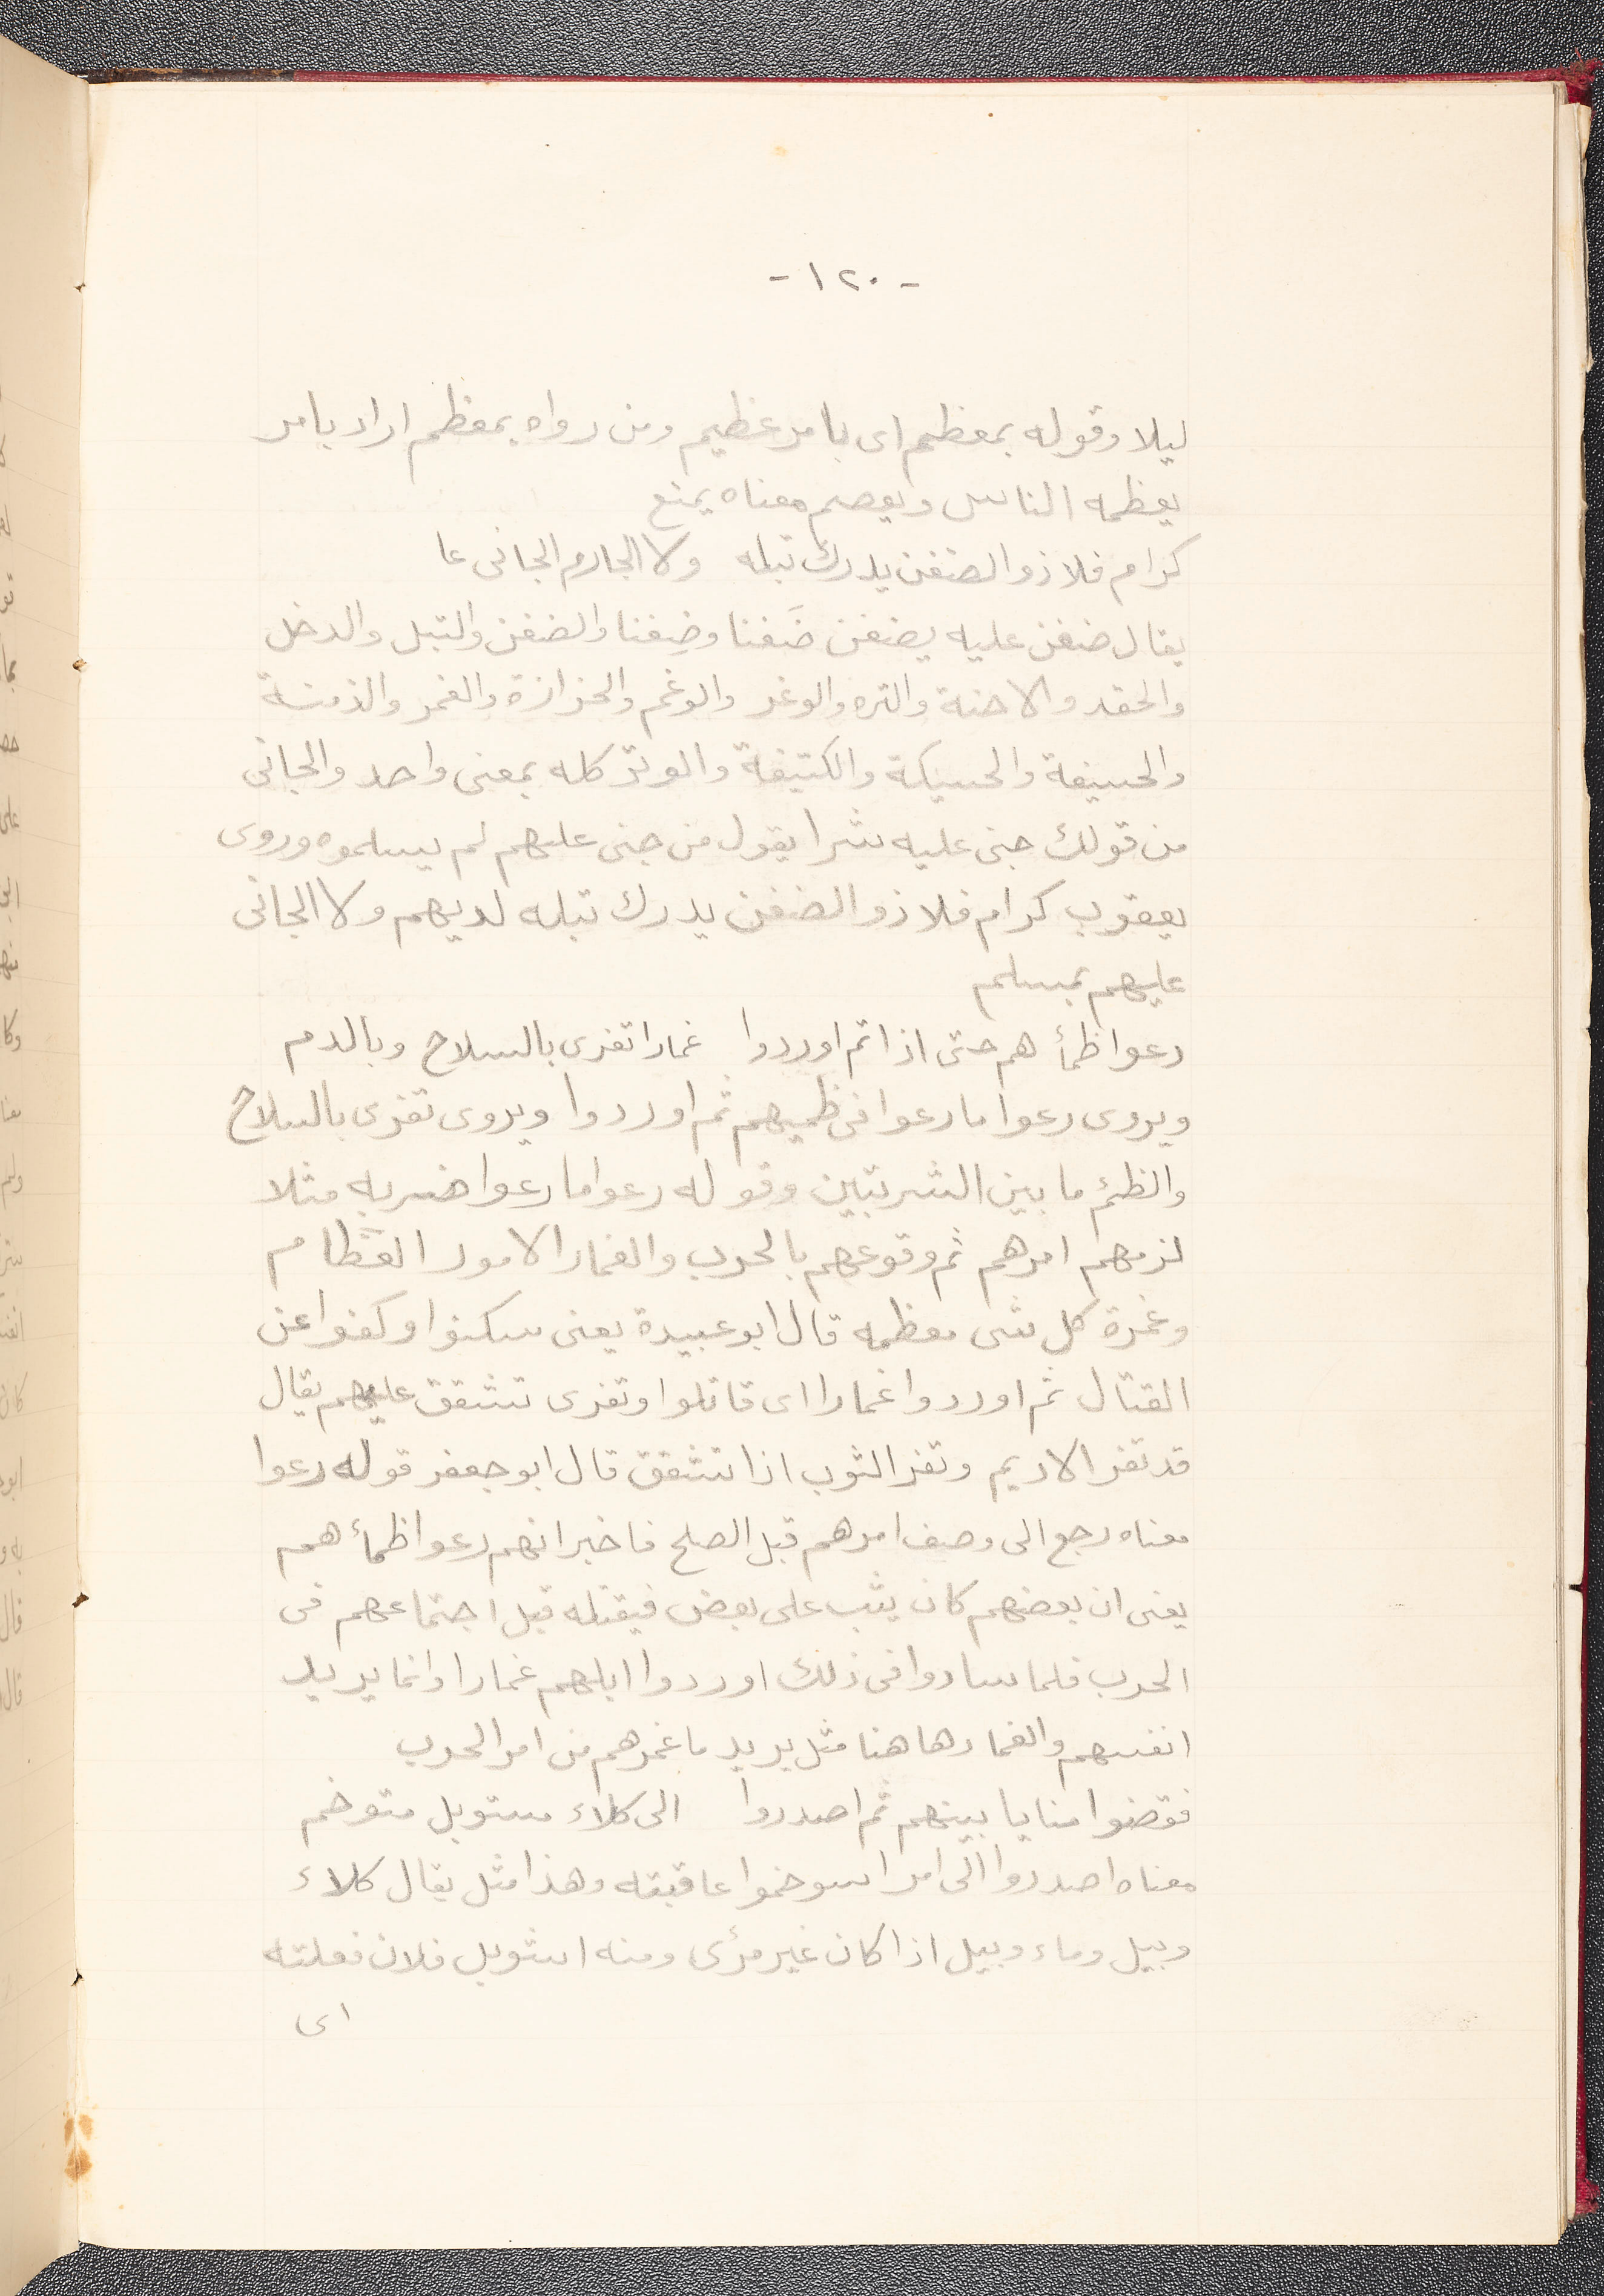 - ١٢٠ -
ليلا وقوله بمعظم اى بامر عظيم ومن رواه بمعظم اراد بامر
يعظمه الناس ويعصم معناه يمنع
كرام فلا ذو الضغن يدرك تبله ولا الجارم الجانى عا
يقال ضغن عليه يضغن ضَغنا وضِغنا والضغن والتبل والدخل
والحقد والاحنة والتره والوغر والوغم والحزازة والغمر والدمنة
والحسيفة والحسيكة والكتيفة والوتر كله بمعنى واحد والجانى
من قولك جنى عليه شرا يقول من جنى عليهم لم يسلموه وروى
يعقوب كرام فلا ذو الضغن يدرك تبله لديهم ولا الجانى
عليهم بمسلم
رعوا ظمأ هم حتى اذا تم اوردوا غمارا تفرى بالسلاح وبالدم
ويروى رعوا ما رعوا فى ظميهم ثم اوردوا ويروى تفرى بالسلاح
والظئم ما بين الشربتين وقوله رعوا ما رعوا ضربه مثلا
لزمهم امرهم ثم وقوعهم بالحرب والغمار الامور العظام
وغمرة كل شى معظمه قال ابو عبيدة يعنى سكنوا وكفوا عن
القتال ثم اوردوا غمارا اى قاتلوا وتفرى تتشقق عليهم يقال
قد تفر الاديم وتفر الثوب اذا تتشقق قال ابو جعفر قوله رعوا
معناه رجع الى وصف امرهم قبل الصلح فاخبر انهم رعوا ظمأ هم
يعنى ان بعضهم كان يثب على بعض فيقتله قبل اجتماعهم فى
الحرب فلما ساروا فى ذلك اوردوا ابلهم غمارا وانما يريد
انفسهم والغمار هاهنا مثل يريد ما غمرهم من امر الحرب
فقضوا منايا بينهم ثم اصدروا الى كلاء مستوبل متوخم
معناه اصدروا الى امر اسوخموا عاقبته وهذا مثل يقال كلاء
وبيل وماء وبيل اذا كان غير مرئ ومنه استوبل فلان فعلته
اى